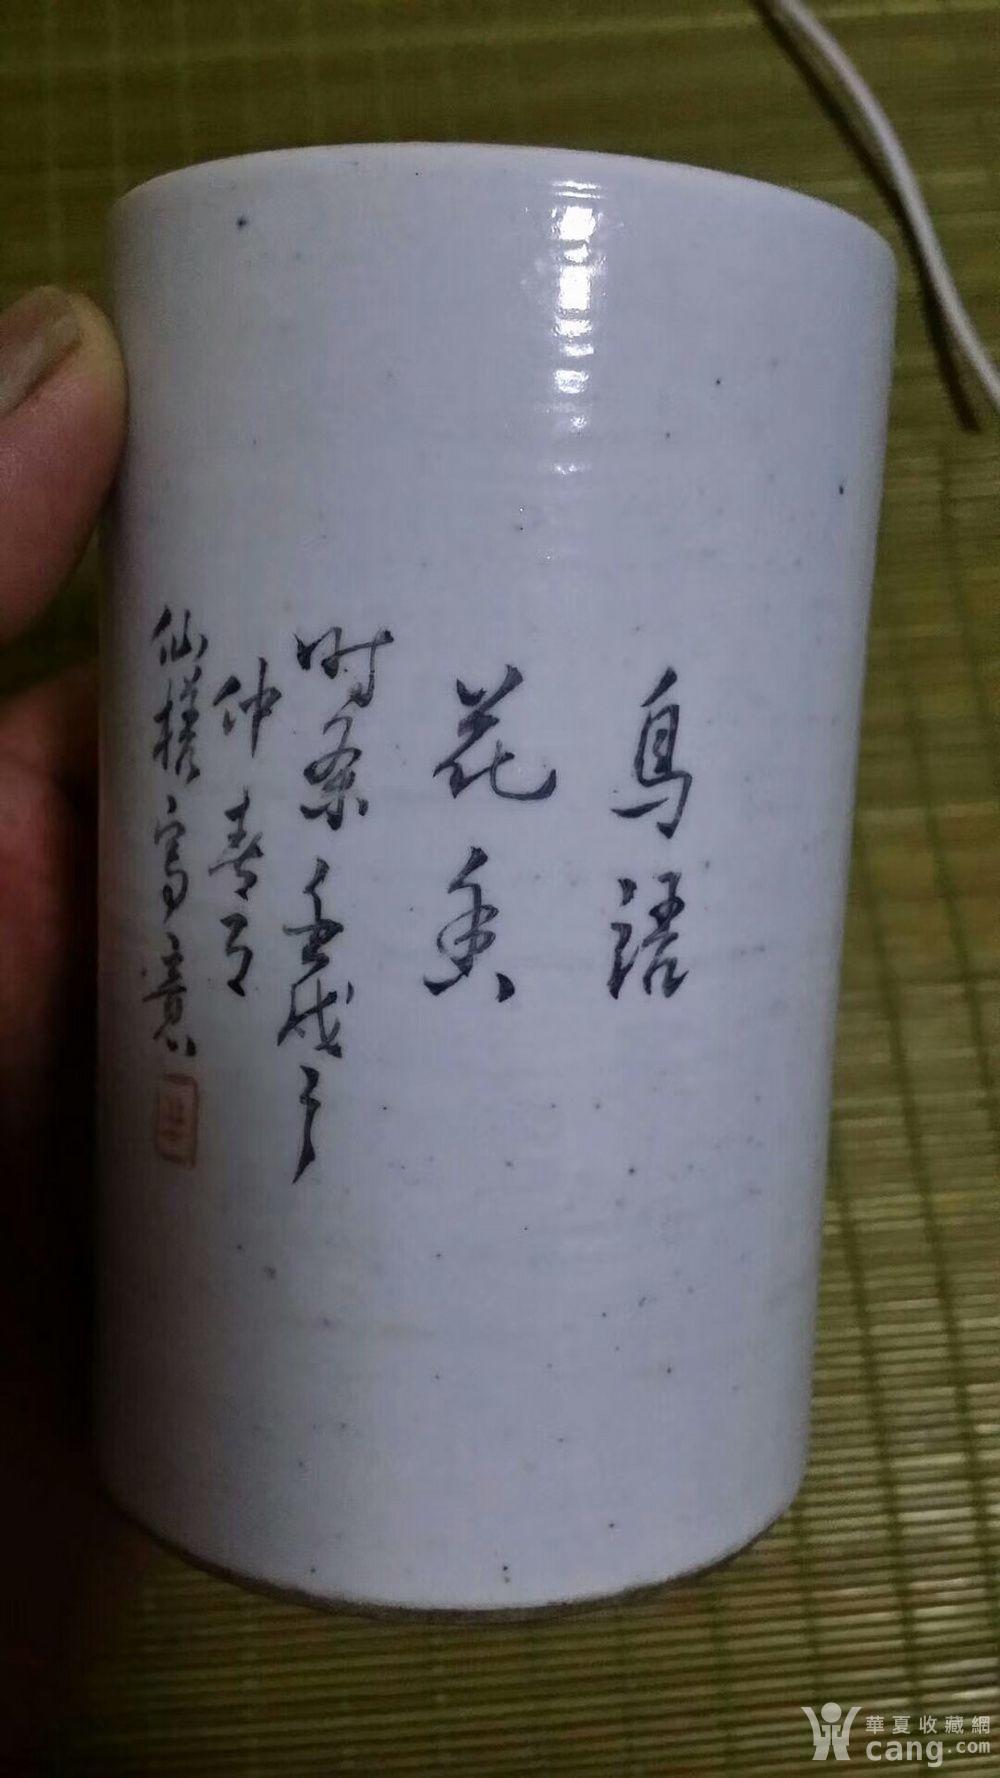 鳥語
花香
時桼壬戌之
仲春月
仙槎寫意
華夏收藏網
cang.com